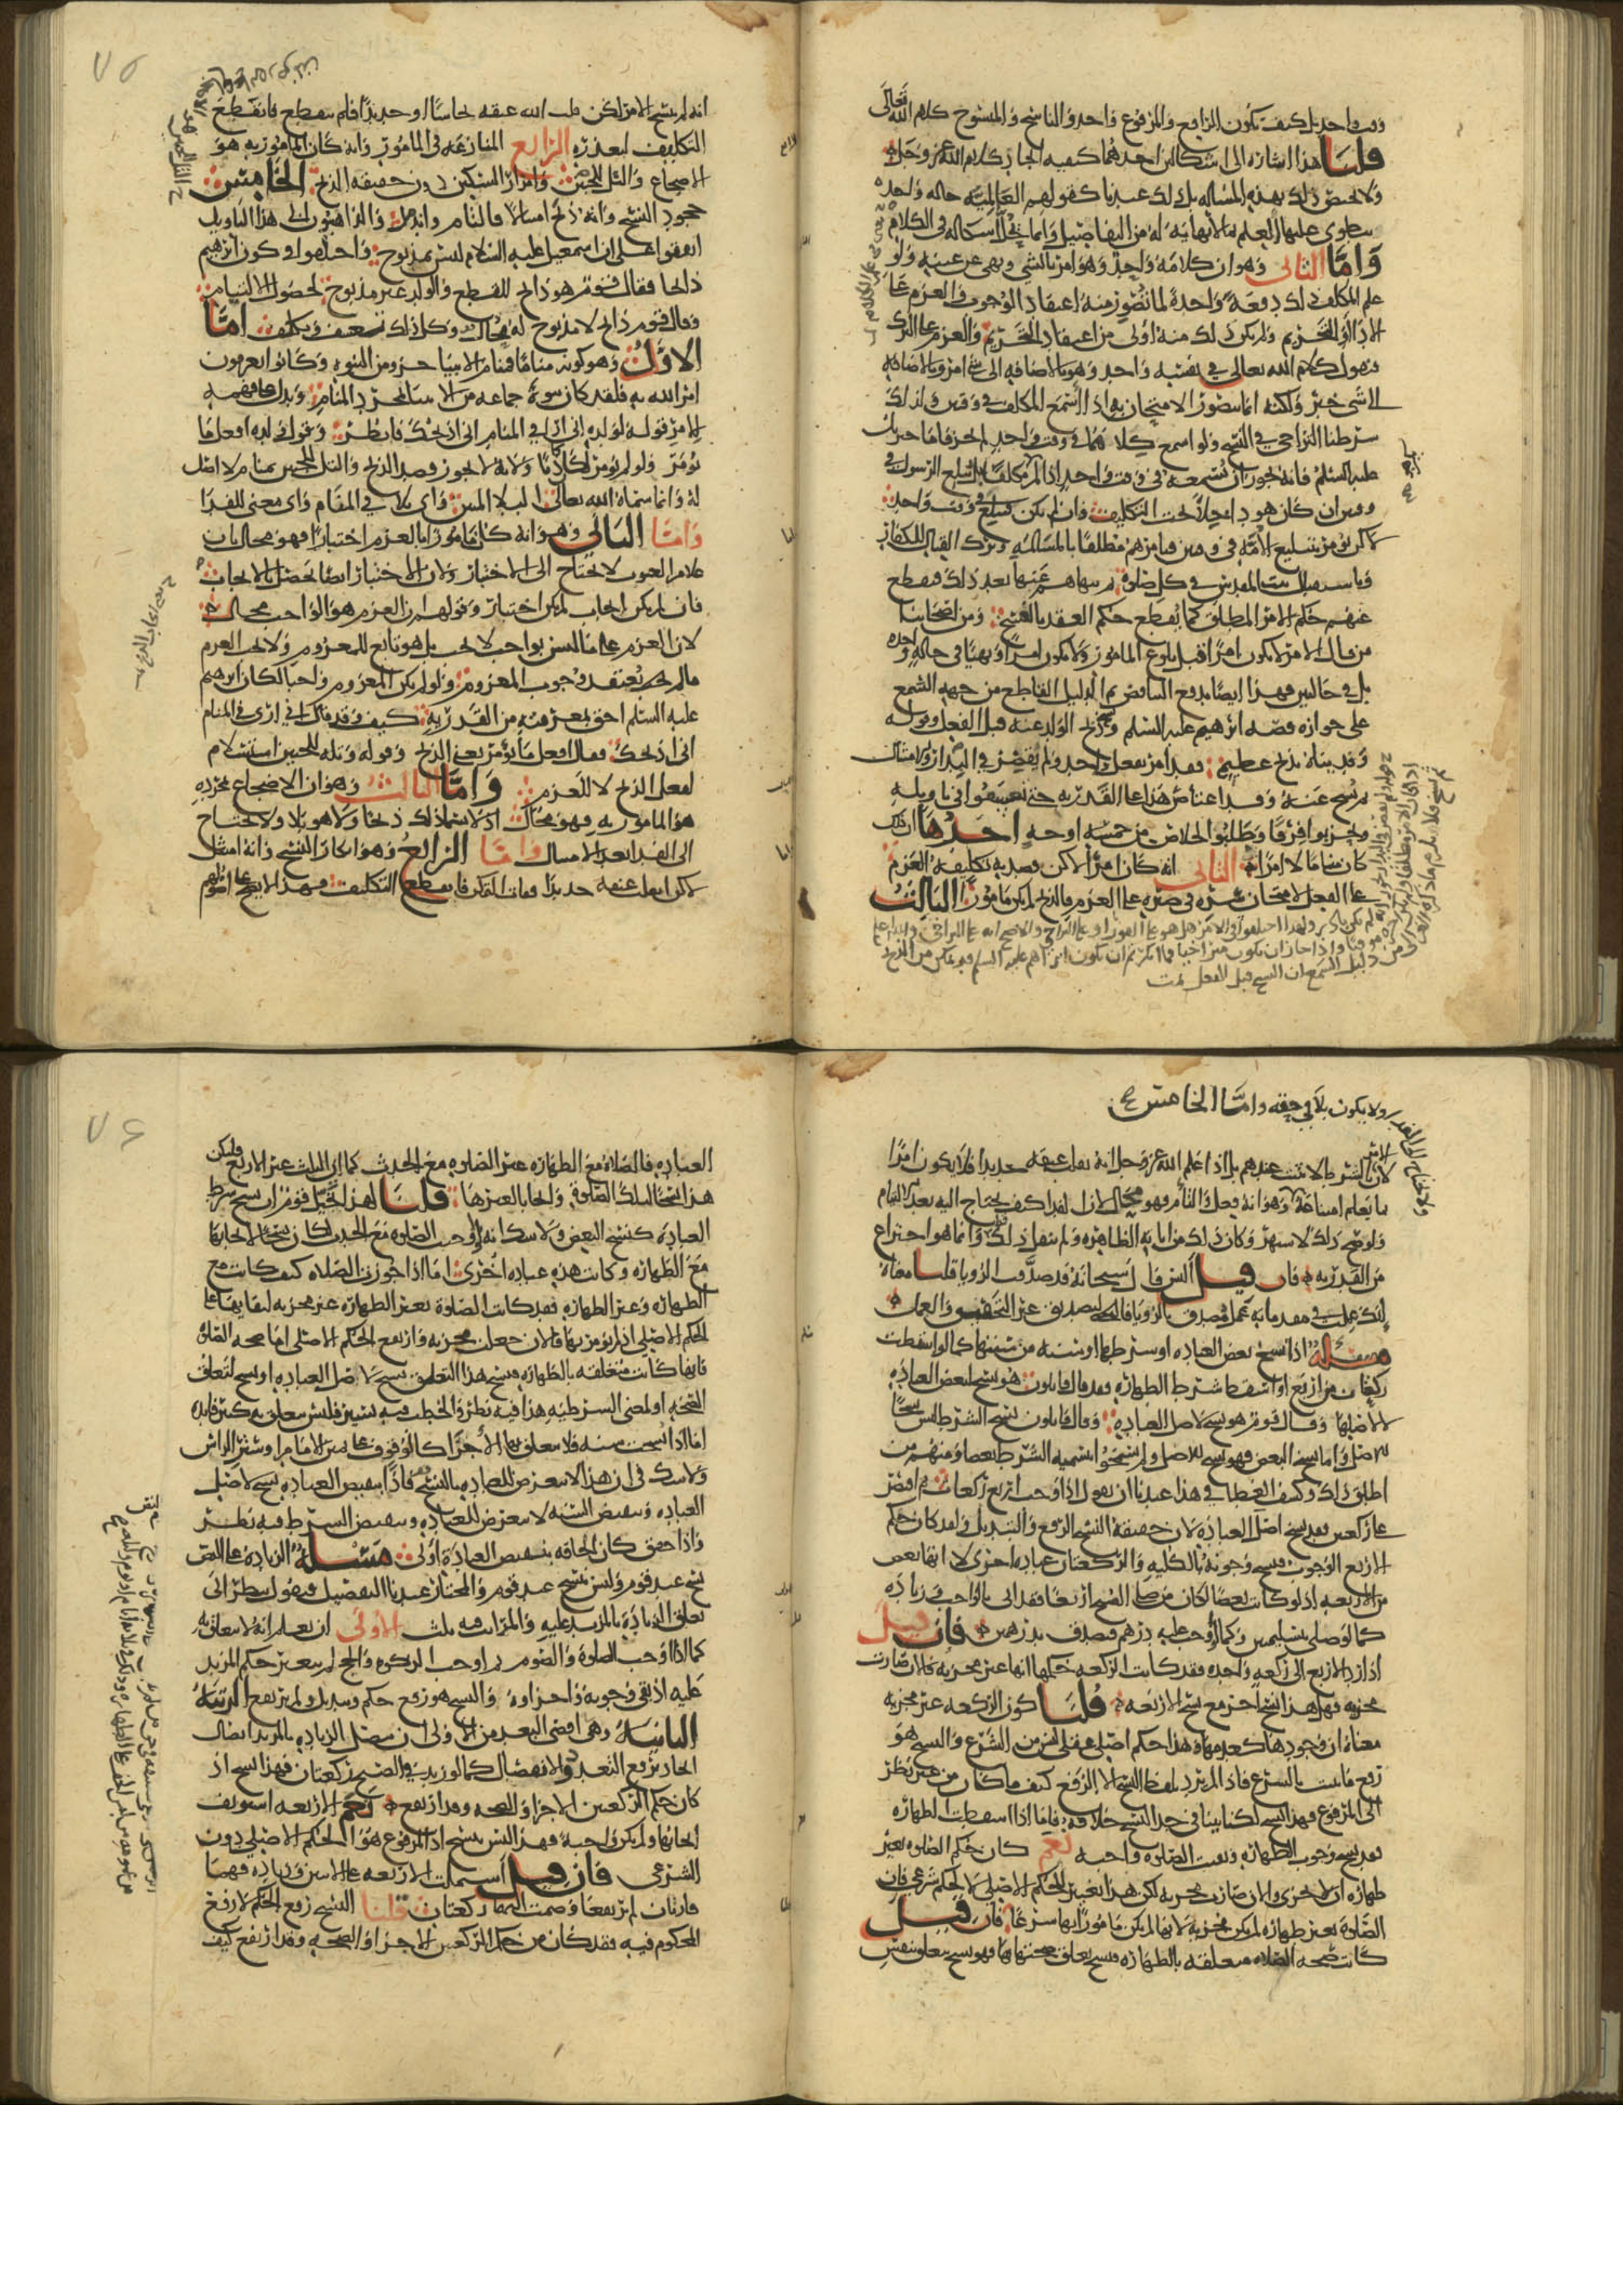 وقت واحد بل كيف يكون الرافع والمرفوع واحد والناسخ والمنسوخ كلام الله تعالى
قلنا هذا اشارة الى اشكالين احدهما كيفية اتحاد كلام الله عز وجل
ولا يختص ذلك بهذه المسألة بل ذلك عندنا كقولهم العالمية حالة واحدة
ينطوي عليها العلم بما لا نهاية له من التفاصيل وانما يحل اشكاله في الكلام
واما الثاني وهو ان كلامه واحد وهو امر بالشي ونهي عن عينه ولو
علم المكلف ذلك دفعة واحدة لما تصور منه اعتقاد الوجوب والعزم على
الاداء والتحريم ولم يكن ذلك منه اولى من اعتقاد التحريم والعزم على الترك
فنقول كلام الله تعالى في نفسه واحد وهو بالاضافة الى شي امر وبالاضافة
الى شي خبر ولكنه انما يتصور الامتحان به اذا استمع المكلف في وقتين ولذلك
شرطنا التراخي في النسخ ولو اسمع كليهما في وقت واحد لم يجز فاما جبريل
عليه السلم فانه يجوز ان تستمعه في وقت واحد اذا لم يكن مكلفا ثم يبلغ الرسول في
وقتين ان كان هو داخلا تحت التكليف فان لم يكن فيبلغ في وقت واحد
لكن يؤمر بتبليغ الامة في وقتين فيامرهم مطلقا بالمسالمة وترك القتال للكفار
وباستقبال بيت المقدس في كل صلوة ثم ينهاهم عنها بعد ذلك فيقطع
عنهم حكم الامر المطلق كما يقطع حكم العقد بالفسخ ومن اصحابنا
من قال الامر لا يكون امرا قبل بلوغ المامور فلا يكون امرا ونهيا في حالة واحدة
بل في حالتين فهذا ايضا يدفع التناقض ثم الدليل القاطع من جهة السمع
على جوازه قصة ابرهيم عليه السلم ونسخ ذبح الولد عنه قبل الفعل وقوله
وفديناه بذبح عظيم فقد امر بفعل واحد ولم يقصر في البدار والامتثال
ثم نسخ عنه وقد اعتاص هذا على القدرية حتى تعسفوا في تاويله
وتحزبوا فرقا وطلبوا الخلاص من خمسة اوجه احدها ان ذلك
كان مناما لا امرا الثاني انه كان امرا لكن قصد به تكليفه العزم
على الفعل لامتحان سره في صبره على العزم فالذبح لم يكن مامورا الثالث
انه لم ينسخ الامر لكن قلب الله عنقه نحاسا او حديدا فلم ينقطع فانقطع
التكليف لتعذره الرابع المنازعة في المامور وانه كان المامور به هو
الاضجاع والتل للجبين وامرار السكين دون حقيقة الذبح الخامس
جحود النسخ وانه ذبح امتثالا فالتام واندمل والذاهبون الى هذا التاويل
اتفقوا على ان اسمعيل عليه السلام ليس بمذبوح واختلفوا في كون ابرهيم
ذابحا فقال قوم هو ذابح للقطع والولد غير مذبوح لحصول الالتيام
وقال قوم ذابح لا مذبوح له محال وكل ذلك تعسف وتكلف اما
الاول وهو كونه مناما فمنام الانبيا جزو من النبوة وكانوا يعرفون
امر الله به فلقد كان نبوة جماعة من الانبيا بمجرد المنام ويدل على فهمه
الامر قول ولده افعل ما
تؤمر ولو لم يؤمر لكان كاذبا ولانه لا يجوز قصد الذبح والتل للجبين بمنام لا اصل
له وانما سماه الله تعالى البلا المبين واي بلا في المنام واي معنى للفدا
واما الثاني وهو انه كان مامورا بالعزم اختبارا فهو محال لان
علام الغيوب لا يحتاج الى الاختبار ولان الاختبار ايضا يحصل بالايجاب
فان لم يكن ايجاب لم يكن اختبار وقولهم ان العزم هو الواجب محال
لان العزم على ما ليس بواجب لا يجب بل هو تابع للمعزوم ولا يجب العزم
مالم يعتقد وجوب المعزوم ولو لم يكن المعزوم واجبا لكان ابرهيم
عليه السلم احق بمعرفته من القدرية كيف وقد قال اني ارى في المنام
اني اذبحك فقال افعل ما تؤمر يعني الذبح وقوله وتله للجبين استسلام
لفعل الذبح لا للعزم واما الثالث وهو ان الاضجاع بمجرده
هو المامور به فهو محال اذ لا يسمى ذلك ذبحا ولا هو بلا ولا يحتاج
الى الفدا بعد الامتثال واما الرابع وهو انكار النسخ وانه امتثل
لكن انقلب عنقه حديدا ففات التمكن فانقطع التكليف فهذا لا يصح على اصولهم
ولا يكون بلا في حقه واما الخامس
لان الامر المشروط لا يثبت عندهم بل اذا علم الله عز وجل انه يقلب عنقه حديدا فلا يكون امرا
بما يعلم امتناعه وهو انه فعل والتام فهو محال لان الفدا كيف يحتاج اليه بعد الالتيام
ولو صح ذلك لاشتهر وكان ذلك من اياته الظاهرة ولم ينقل ذلك قط وانما هو اختراع
من القدرية فان قيل اليس قال سبحانه قد صدقت الرؤيا قلنا معناه
انك عملت في مقدماته عمل مصدق بالرؤيا والتصديق غير التحقيق والعمل
مسئلة اذا نسخ بعض العبادة او شرطها او سنة من سننها كما لو اسقطت
ركعتان من اربع او اسقط شرط الطهارة فقد قال قايلون هو نسخ لبعض العبادة
لا لاصلها وقال قوم هو نسخ لاصل العبادة وقال قايلون نسخ الشرط ليس نسخا
للاصل واما نسخ البعض فهو نسخ للاصل ولم يسمحوا بتسمية الشرط بعضا ومنهم من
اطلق ذلك وكشف الغطا في هذا عندنا ان نقول اذا وجب اربع ركعات ثم اقتصر
على ركعتين فقد نسخ اصل العبادة لان حقيقة النسخ الرفع والتبديل ولقد كان حكم
الاربع الوجوب فنسخ وجوبها بالكلية والركعتان عبادة اخرى لا انها بعض
من الاربعة اذ لو كانت بعضا لكان من صلى الصبح اربعا فقد اتى بالواجب وزيادة
كما لو صلى بتسليمتين وكما لو وجب عليه درهم فتصدق بدرهمين فان قيل
اذا رد الاربع الى ركعة واحدة فقد كانت الركعة حكمها انها غير مجزية والان صارت
مجزية فهل هذا نسخ اخر مع نسخ الاربعة قلنا كون الركعة غير مجزية
معناه ان وجودها كعدمها وهذا حكم اصلي عقلي ليس من الشرع والنسخ هو
رفع ما ثبت بالشرع فاذا لم يرد بلفظ النسخ الا الرفع كيف ما كان من غير نظر
الى المرفوع فهذا نسخ لكنا بينا في حد النسخ خلافه فاما اذا اسقطت الطهارة
فقد نسخ وجوب الطهارة وبقيت الصلوة واجبة نعم كان حكم الصلوة بغير
طهارة ان لا تجزى والان صارت مجزية لكن هذا تغيير للحكم الاصلي لا لحكم شرعي فان
الصلوة بغير طهارة لم يكن مجزية لانها لم يكن مامورا بها شرعا فان قيل
كانت صحة الصلاة متعلقة بالطهارة فنسخ تعلق صحتها بها فهو نسخ متعلق بنفس
العبادة فالصلاة مع الطهارة غير الصلوة مع الحدث كما ان الثلث غير الاربع فليكن
هذا نسخا لتلك الصلوة وايجابا لغيرها قلنا لهذا تخيل قوم ان نسخ شرط
العبادة كنسخ البعض ولا شك انه لو اوجب الصلوة مع الحدث لكان نسخا لايجابها
مع الطهارة وكانت هذه عبادة اخرى اما اذا جوزت الصلاة كيف كانت مع
الطهارة وغير الطهارة فقد كانت الصلوة بغير الطهارة غير مجزية لبقايها على
الحكم الاصلي اذ لم يؤمر بها فالان جعلت مجزية وارتفع الحكم الاصلي اما صحة الصلوة
فانها كانت متعلقة بالطهارة فنسخ هذا التعلق نسخ لاصل العبادة او نسخ لتعلق
الصحة او لمعنى الشرطية هذا فيه نظر والخطب فيه يسير فليس يتعلق به كبير فايدة
اما اذا نسخت سنة فلا يتعلق بها الاجزا كالوقوف على يمين الامام او ستر الراس
ولا شك في ان هذا لا يتعرض للعبادة بالنسخ فاذا تبعيض العبادة نسخ لاصل
العبادة وتبعيض السنة لا يتعرض للعبادة وتبعيض الشرط فيه نظر
واذا حقق كان الحاقه بتبعيض العبادة اولى مسئلة الزيادة على النص
نسخ عند قوم وليس بنسخ عند قوم والمختار عندنا التفصيل فنقول ينظر الى
تعلق الزيادة بالمزيد عليه والمراتب فيه ثلث الاولى ان يعلم انه لا يتعلق به
كما اذا اوجب الصلوة والصوم ثم اوجب الزكوة والحج لم يتغير حكم المزيد
عليه اذ بقي وجوبه واجزاوه والنسخ هو رفع حكم وتبديل ولم يرتفع الرتبة
الثانية وهي اقصى البعد من الاولى ان يتصل الزيادة بالمزيد اتصال
اتحاد يرفع التعدد والانفصال كما لو زيد في الصبح ركعتان فهذا نسخ اذ
كان حكم الركعتين الاجزا والصحة وقد ارتفع نعم الاربعة استونف
ايجابها ولم يكن واجبة فهذا ليس بنسخ اذ المرفوع هو الحكم الاصلي دون
الشرعي فان قيل اشتملت الاربعة على الاثنين وزيادة فهما
قارتان لم ترفعا وضمت اليهما ركعتان قلنا النسخ رفع الحكم لا رفع
المحكوم فيه فقد كان من حكم الركعتين الاجزا والصحة وقد ارتفع كيف